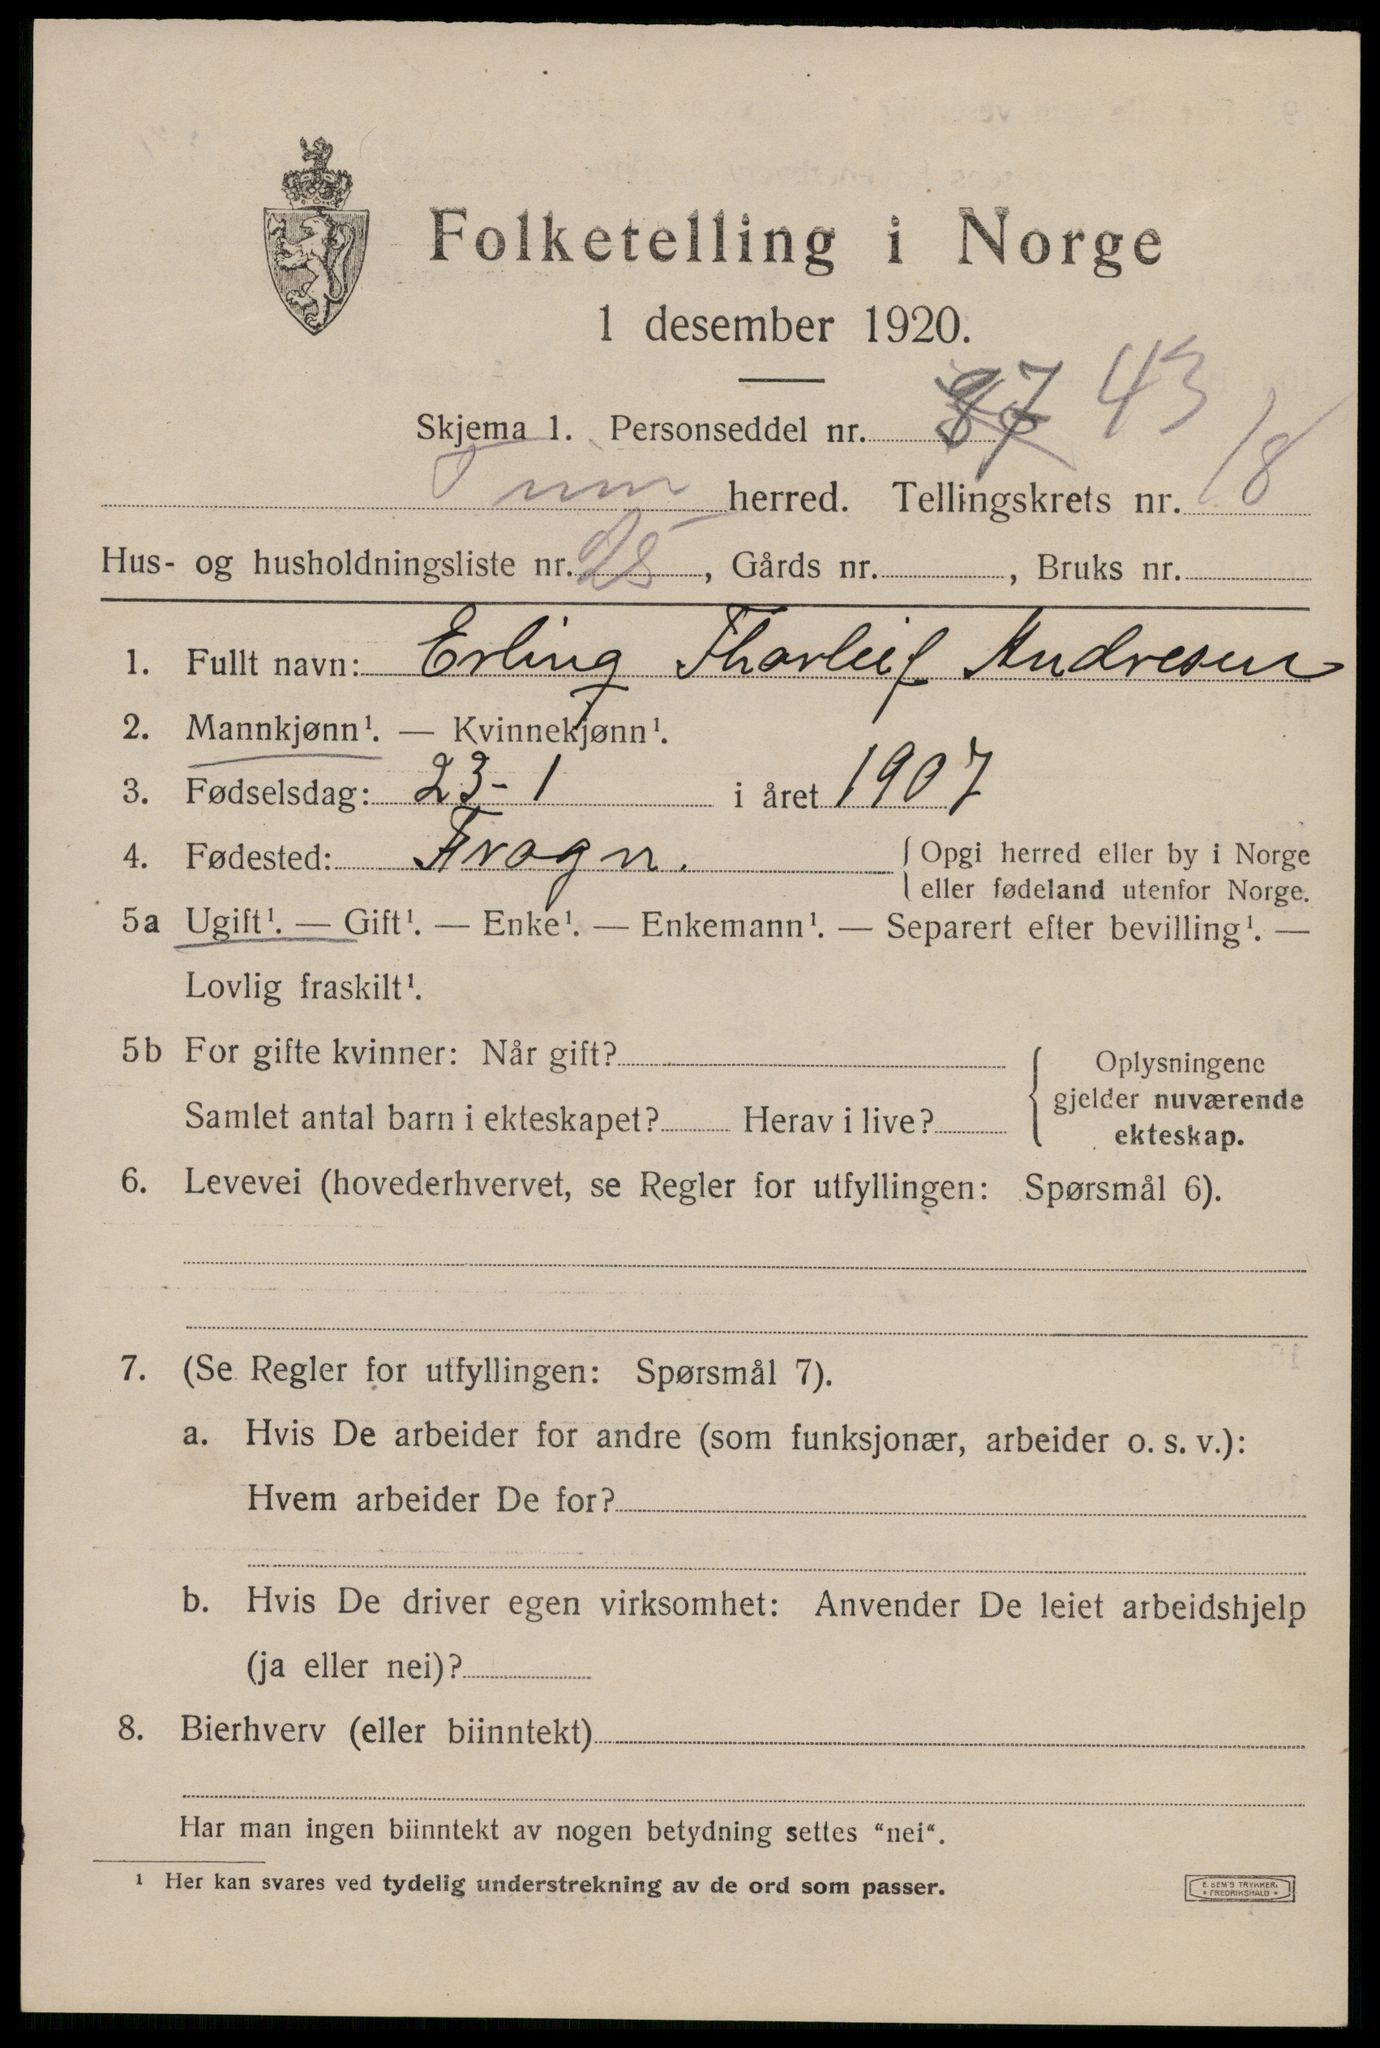 Folketelling i Norge
1 desember 1920.
Skjema 1. Personseddel nr. 87 43
Tinn herred. Tellingskrets nr. 18
Hus- og husholdningsliste nr. 28, Gårds nr. , Bruks nr.
1. Fullt navn: Erling Thorleif Andresen
2. Mannkjønn¹. — Kvinnekjønn¹.
3. Fødselsdag: 23-1 i året 1907
4. Fødested: Frogn. { Opgi herred eller by i Norge
eller fødeland utenfor Norge.
5a Ugift¹. — Gift¹. — Enke¹. — Enkemann¹. — Separert efter bevilling¹. —
Lovlig fraskilt¹.
5b For gifte kvinner: Når gift?
Samlet antal barn i ekteskapet? Herav i live?
{ Oplysningene
gjelder nuværende
ekteskap.
6. Levevei (hovederhvervet, se Regler for utfyllingen: Spørsmål 6).
7. (Se Regler for utfyllingen: Spørsmål 7).
a. Hvis De arbeider for andre (som funksjonær, arbeider o. s. v.):
Hvem arbeider De for?
b. Hvis De driver egen virksomhet: Anvender De leiet arbeidshjelp
(ja eller nei)?
8. Bierhverv (eller biinntekt)
Har man ingen biinntekt av nogen betydning settes "nei".
¹ Her kan svares ved tydelig understrekning av de ord som passer.
E. SEM'S TRYKKERI
* FREDRIKSHALD *